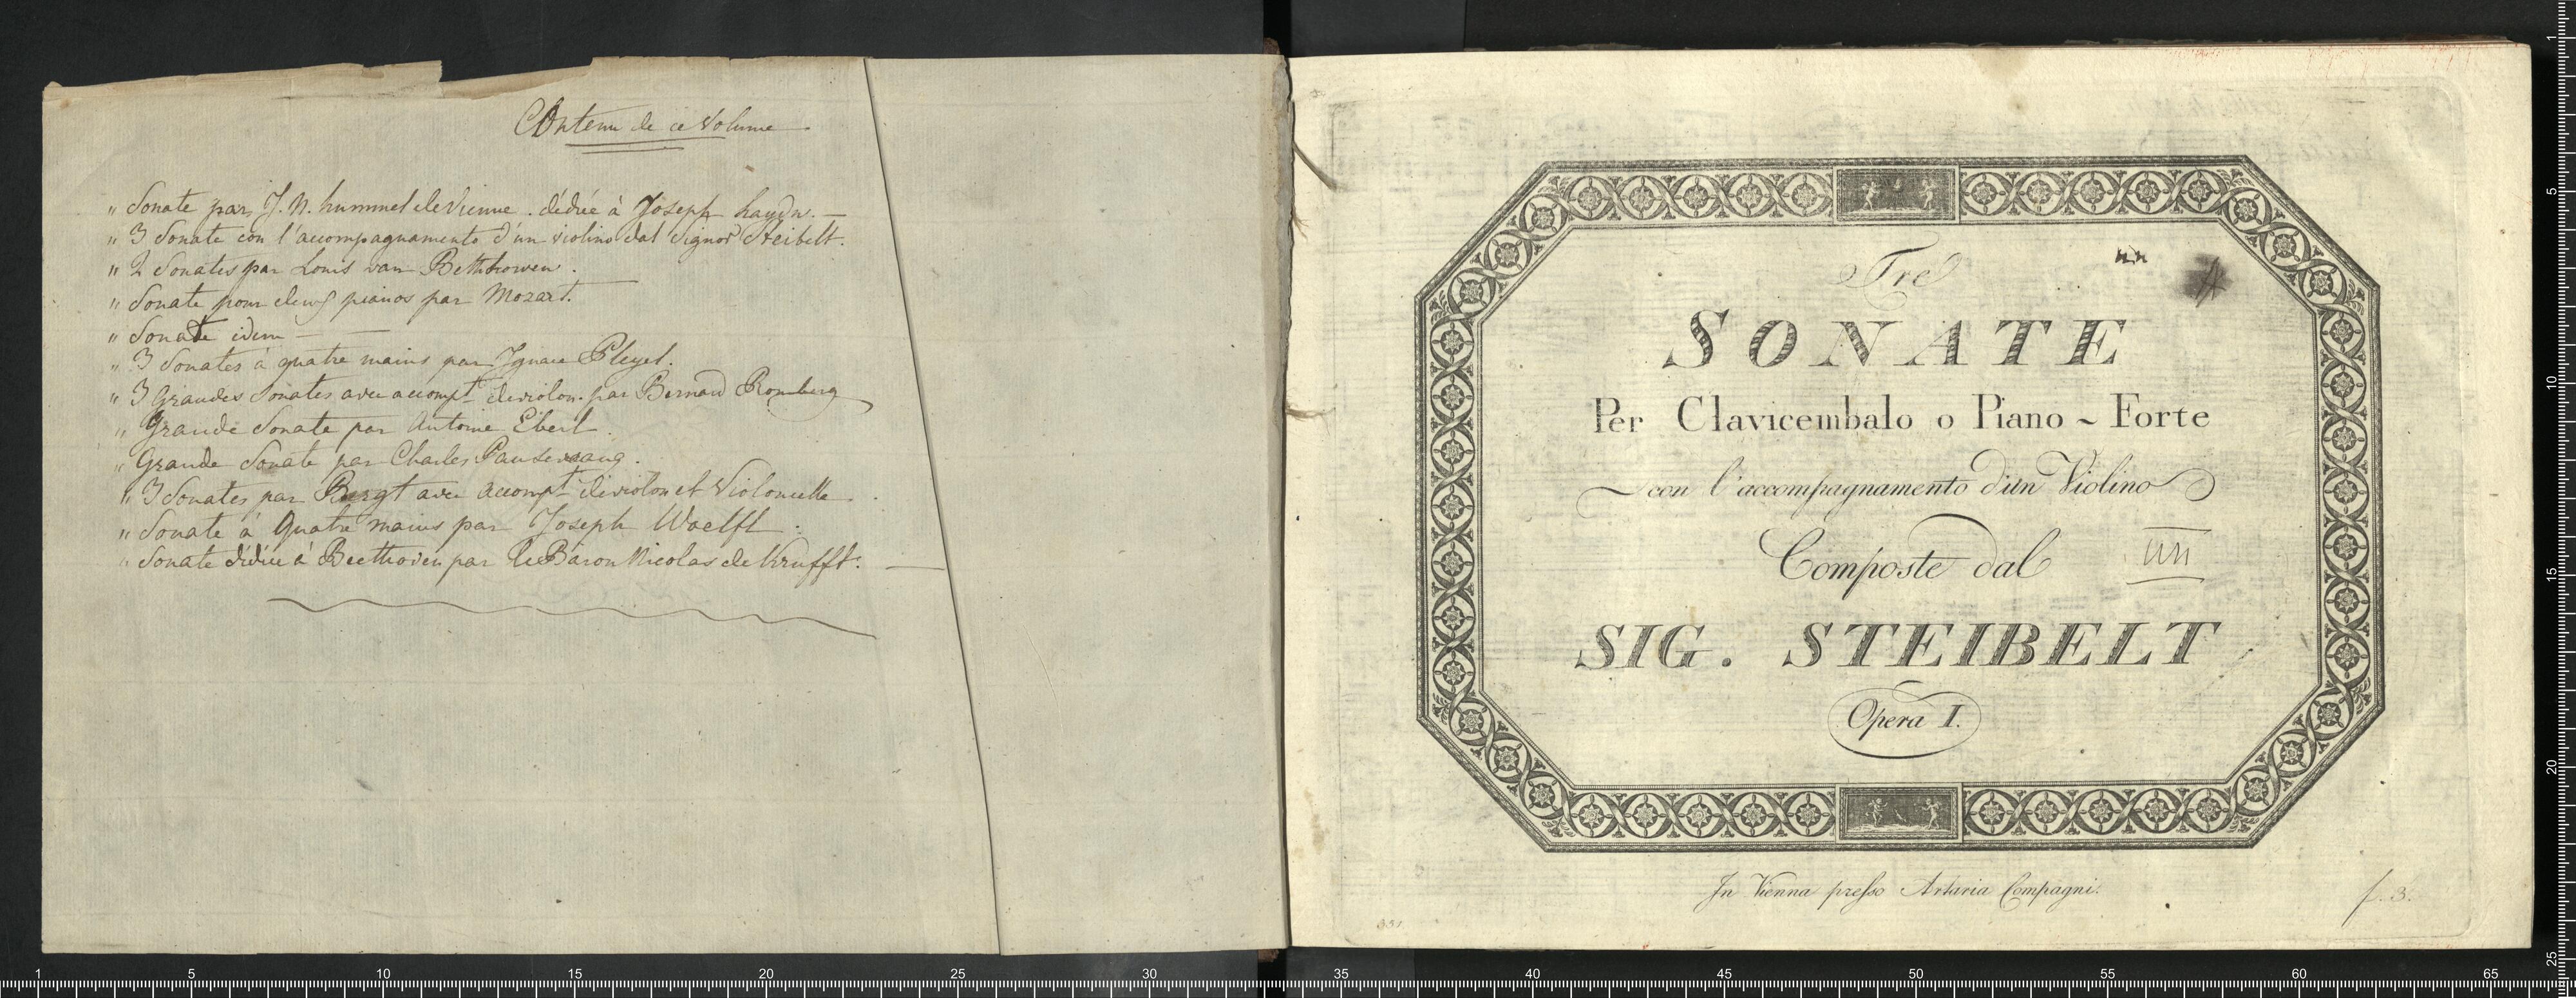 Contenu de ce Volume
" Sonate par J. N. hummel de Vienne. dédiée à Joseph haydn. —
" 3 Sonate con l'accompagnamento d'un violino dal Signor Steibelt.
" 2 Sonates par Louis van Bethhowen.
" Sonate pour deux pianos par Mozart.
" Sonate idem —
" 3 Sonates à quatre mains par Ignace Pleyel.
" 3 Grandes Sonates avec accompt de violon. par Bernard Romberg
" Grande Sonate par Antoine Eberl.
" Grande Sonate par Charles
" 3 Sonates par Bergt avec accompt de violon et Violoncelle.
" Sonate à Quatre mains par Joseph Woelfl.
" Sonate dédiée à Beethoven par le Baron Nicolas de Krufft. —
Tre
SONATE
Per Clavicembalo o Piano ~ Forte
con l'accompagnamento d'un Violino
Composte dal
SIG. STEIBELT
Opera I.
In Vienna presso Artaria Compagni.
f. 3.
351
1 5 10 15 20 25 30 35 40 45 50 55 60 65
1 5 10 15 20 25